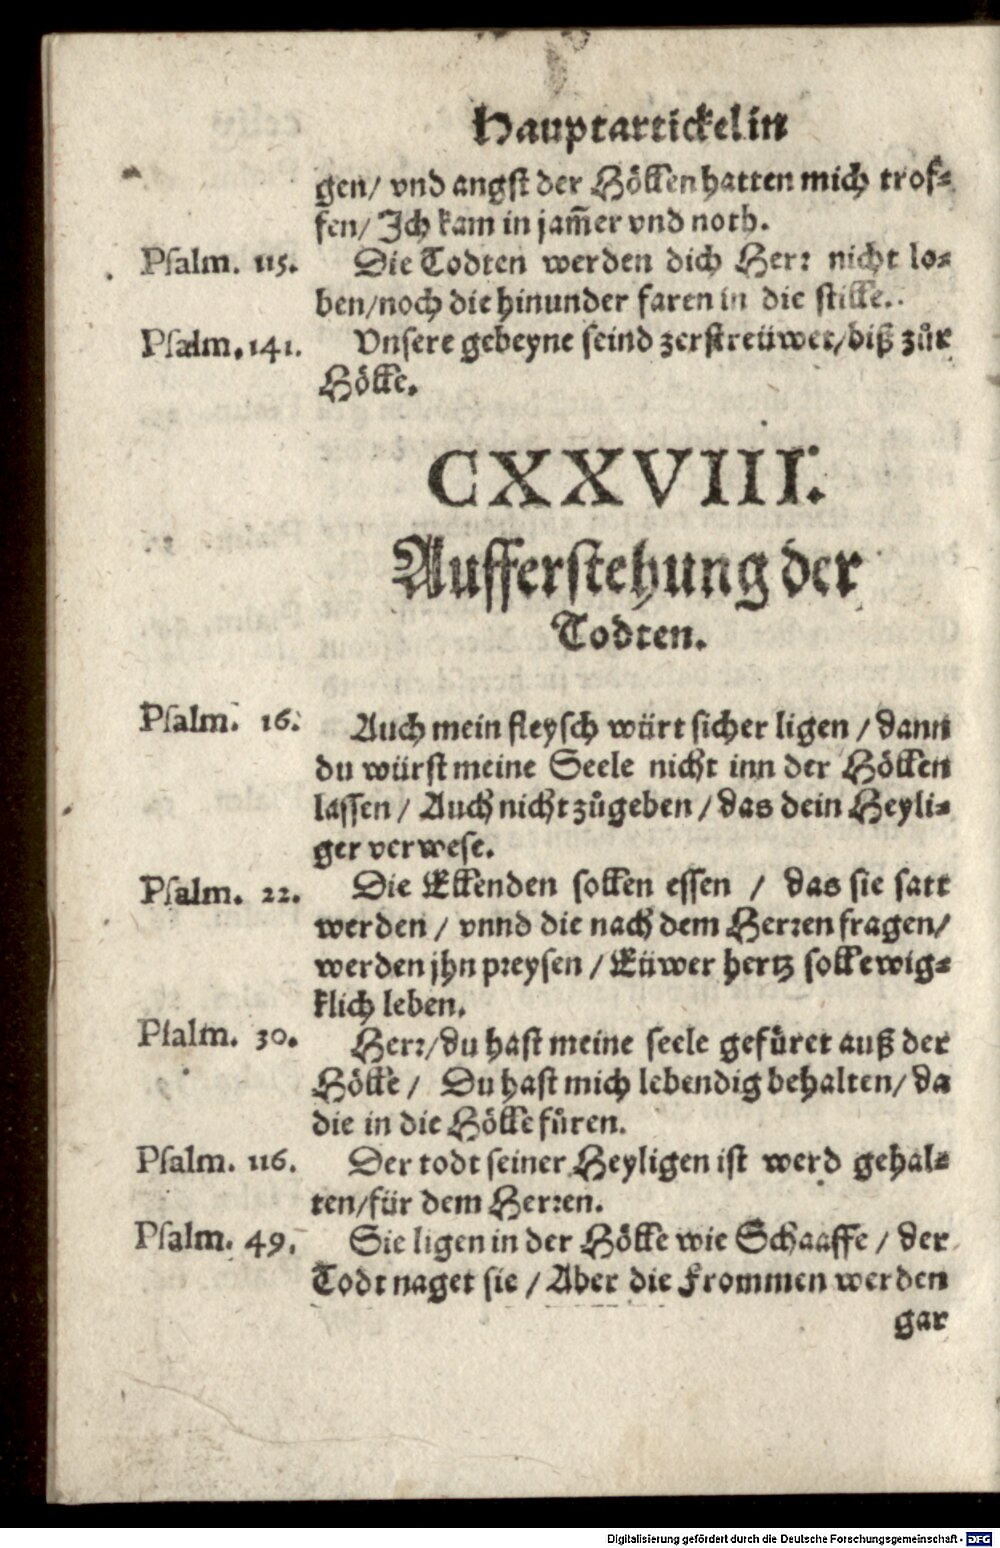 Hauptartickel in
gen/ vnd angst der Höllen hatten mich trof⸗
fen/ Ich kam in jam̄er vnd noth.
Psalm. 115. Die Todten werden dich Herr nicht lo⸗
ben/noch die hinunder faren in die stille..
Psalm. 141. Vnsere gebeyne seind zerstreüwet/biß zůr
Hölle.
CXXVIII.
Aufferstehung der
Todten.
Psalm. 16. Auch mein fleysch würt sicher ligen / dann
du würst meine Seele nicht inn der Höllen
lassen / Auch nicht zůgeben / das dein Heyli⸗
ger verwese.
Psalm. 22. Die Ellenden sollen essen / das sie satt
werden / vnnd die nach dem Herren fragen/
werden jhn preysen / Eüwer hertz soll ewig⸗
klich leben.
Psalm. 30. Herr/du hast meine seele gefüret auß der
Hölle / Du hast mich lebendig behalten/ da
die in die Hölle füren.
Psalm. 116. Der todt seiner Heyligen ist werd gehal⸗
ten/für dem Herren.
Psalm. 49. Sie ligen in der Hölle wie Schaaffe / der
Todt naget sie / Aber die Frommen werden
gar
Digitalisierung gefördert durch die Deutsche Forschungsgemeinschaft - DFG